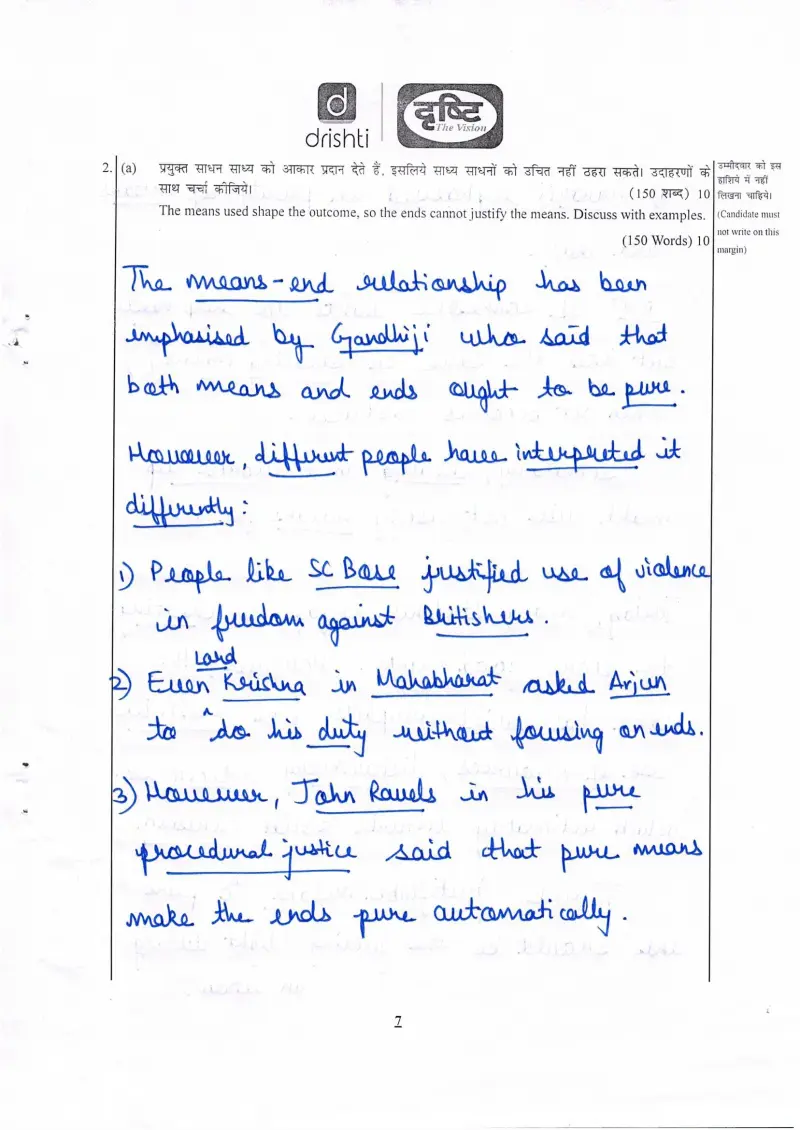 d
drishti
दृष्टि
The Vision
2. (a) प्रयुक्त साधन साध्य को आकार प्रदान देते हैं, इसलिये साध्य साधनों को उचित नहीं ठहरा सकते। उदाहरणों के
साथ चर्चा कीजिये।
(150 शब्द) 10
The means used shape the outcome, so the ends cannot justify the means. Discuss with examples.
(150 Words) 10
उम्मीदवार को इस
हाशिये में नहीं
लिखना चाहिये।
(Candidate must
not write on this
margin)
The means-end relationship has been
emphasised by Gandhiji who said that
both means and ends ought to be pure.
However, different people have interpreted it
differently:
1) People like SC Bose justified use of violence
in freedom against Britishers.
Lord
2) Even Krishna in Mahabharat asked Arjun
to do his duty without focusing on ends.
3) However, John Rawls in his pure
procedural justice said that pure means
make the ends pure automatically.
7